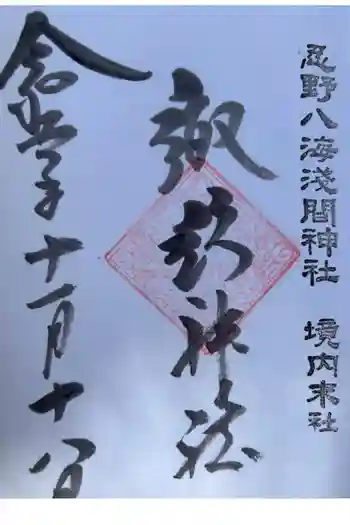 忍野八海淺間神社 境内末社
諏訪神社
令和五年十一月十八日